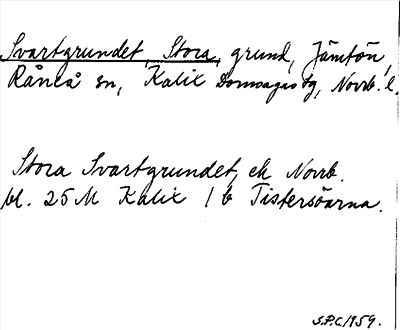 Svartgrundet, Stora, grund, Jämtön,
Råneå sn, Kalix Domsagas tg, Norrb. l.
Stora Svartgrundet, ek Norrb.
bl. 25 M Kalix 1 b Tistersöarna.
S.P.C. 1959.